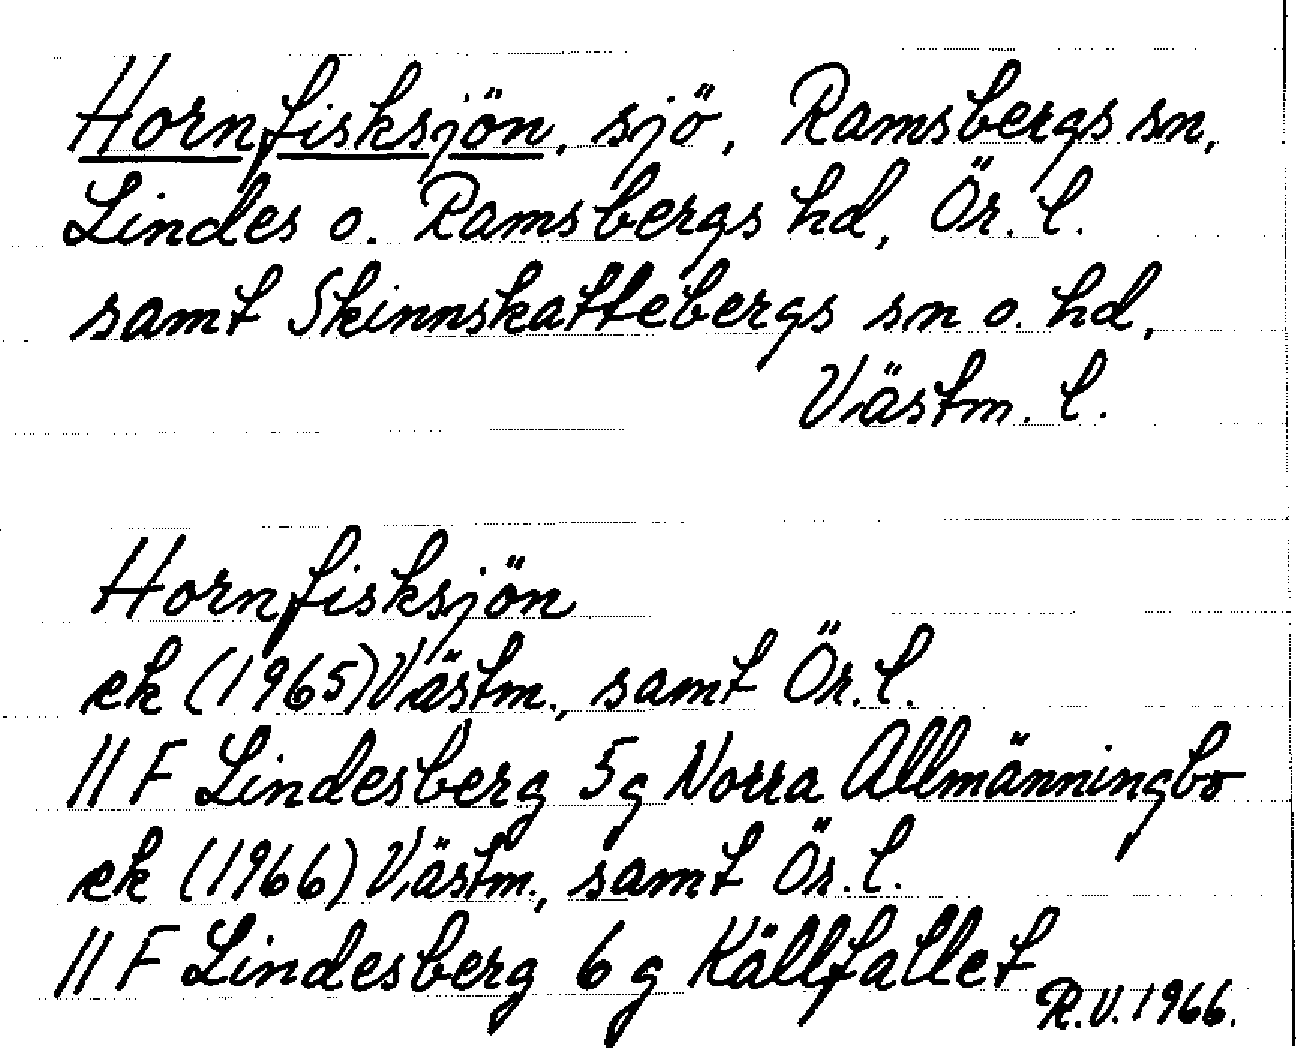 Hornfisksjön, sjö, Ramsbergs sn,
Lindes o. Ramsbergs hd, Ör. l.
samt Skinnskattebergs sn o. hd,
Västm. l.
Hornfisksjön
ek (1965) Västm., samt Ör. l.
11 F Lindesberg 5 g Norra Allmänningbo
ek (1966) Västm., samt Ör. l.
11 F Lindesberg 6 g Källfallet
R.V. 1966.